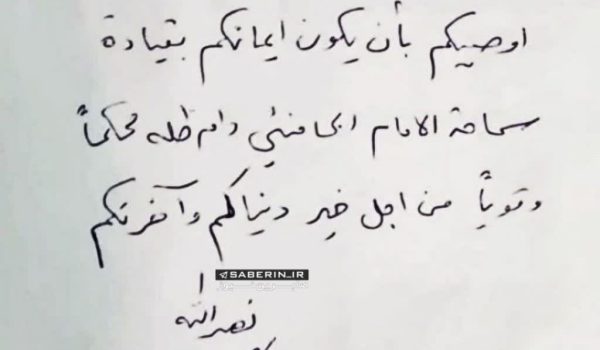 اوصيكم بأن يكون ايمانكم بقيادة
سماحة الامام الخامنئي دام ظله محكماً
وقوياً من اجل خير دنياكم وآخرتكم
SABERIN_IR
صابرین نیوز
نصرالله